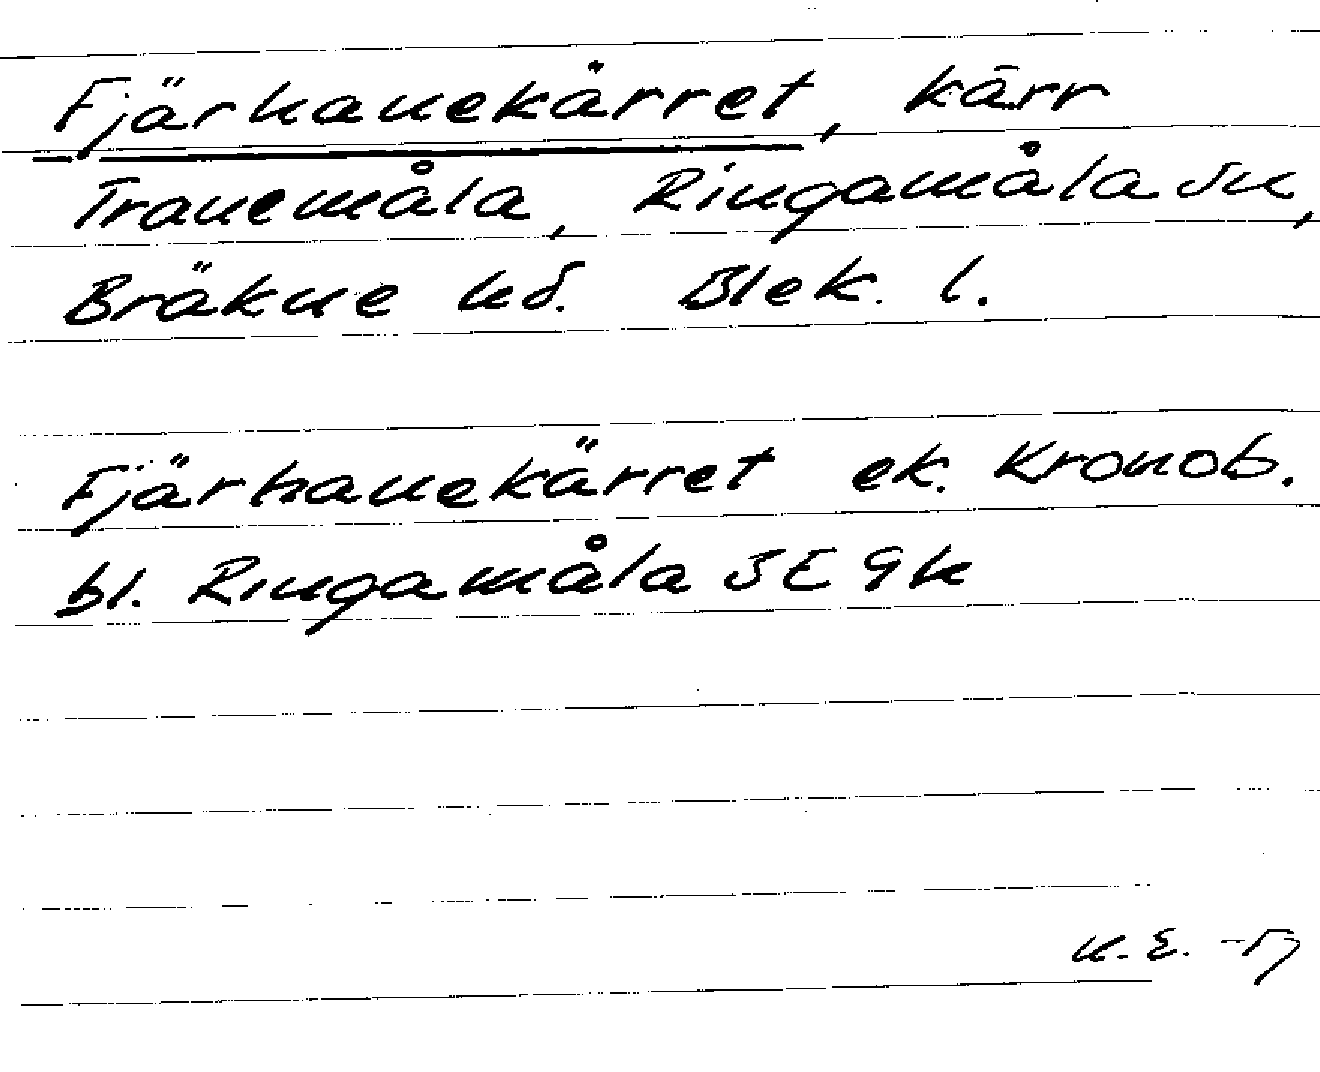 Fjärhanekärret, kärr
Tranemåla, Ringamåla sn,
Bräkne hd. Blek. l.
Fjärhanekärret ek. Kronob.
bl. Ringamåla 3E 9h